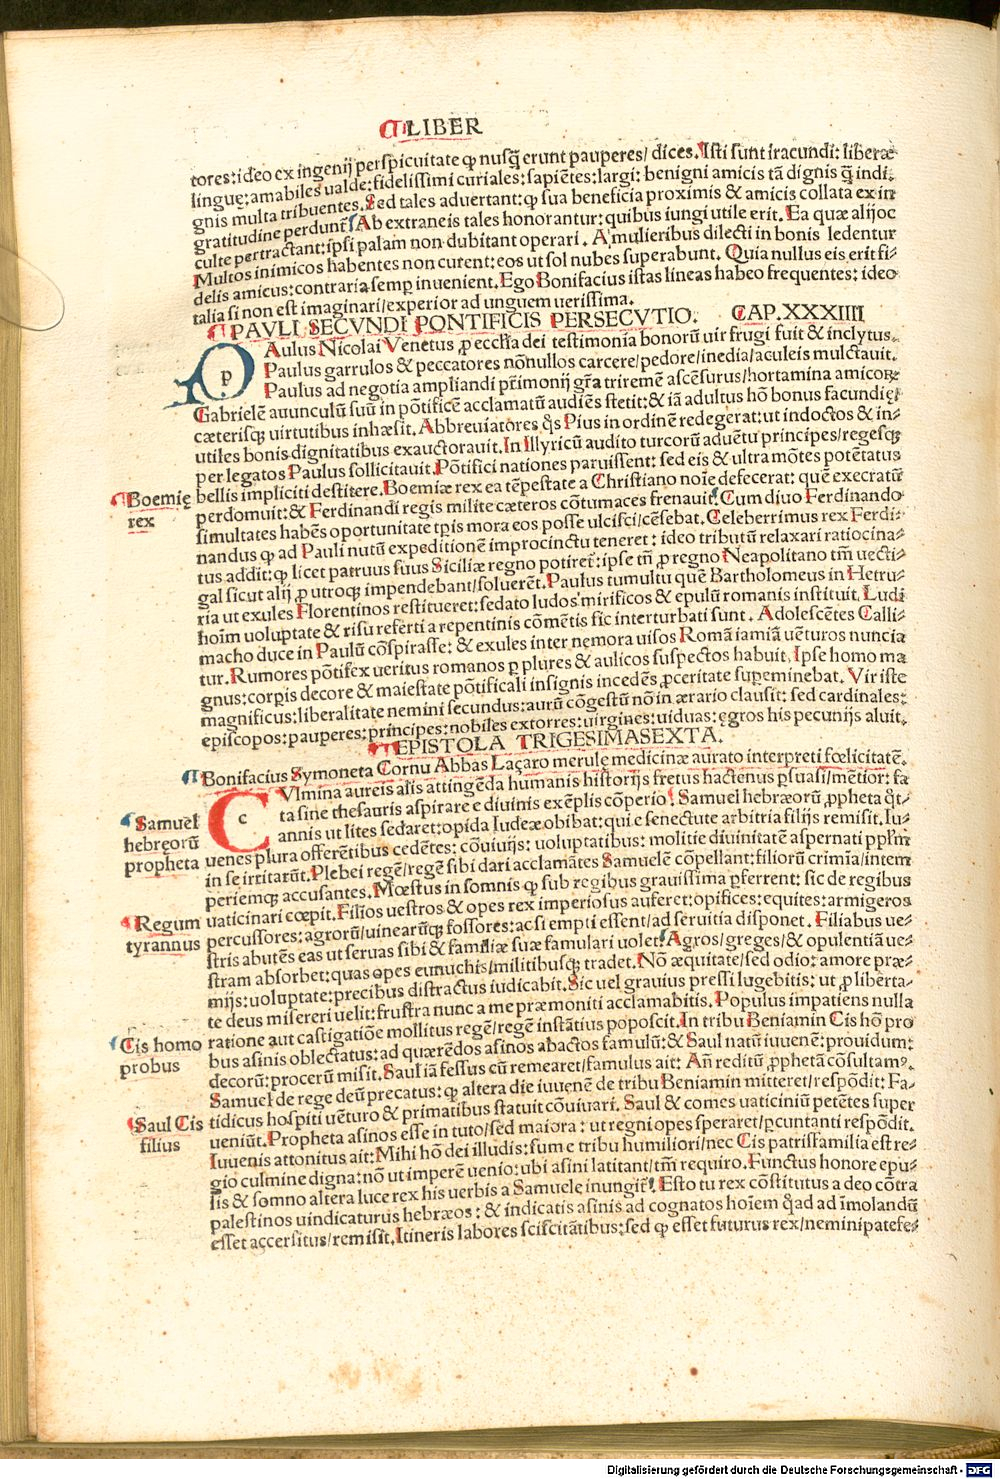 LIBER
tores: ideo ex ingenij perspicuitate ꝙ nusq̃ erunt pauperes/ dices. Isti sunt iracundi: liberæ
linguę: amabiles ualde: fidelissimi curiales: sapiētes: largi: benigni amicis tā dignis q̃ indi-
gnis multa tribuentes. Sed tales aduertant: ꝙ sua beneficia proximis & amicis collata ex in
gratitudine perdunt. Ab extraneis tales honorantur: quibus iungi utile erit. Ea quæ alij oc
culte pertractant: ipsi palam non dubitant operari. A mulieribus dilecti in bonis ledentur
Multos inimicos habentes non curent: eos ut sol nubes superabunt. Quia nullus eis erit fi-
delis amicus: contraria semp̱ inuenient. Ego Bonifacius istas lineas habeo frequentes: ideo
talia si non est imaginari/ experior ad unguem uerissima.
PAVLI SECVNDI PONTIFICIS PERSECVTIO. CAP.XXXIIII
p
Aulus Nicolai Venetus ꝓ eccľia dei testimonia bonorū uir frugi fuit & inclytus.
Paulus garrulos & peccatores nōnullos carcere/ pedore/ inedia/ aculeis mulctauit.
Paulus ad negotia ampliandi pr̄imonij gr̄a triremē ascēsurus/ hortamina amicoꝝ
Gabrielē auunculū suū in pōtificē acclamatū audiēs stetit: & iā adultus hō bonus facundię
cæterisꝗ uirtutibus inhæsit. Abbreuiatores q̃s Pius in ordinē redegerat: ut indoctos & in-
utiles bonis dignitatibus exauctorauit. In Illyricū audito turcorū aduētu principes/ regesꝗ
per legatos Paulus sollicitauit. Pōtifici nationes paruissent: sed eis & ultra mōtes potētatus
bellis impliciti destitere. Boemiæ rex ea tēpestate a Christiano noīe defecerat: quē execratū
perdomuit: & Ferdinandi regis milite cæteros cōtumaces frenauit. Cum diuo Ferdinando
simultates habēs oportunitate tp̄is mora eos posse ulcisci/ cēsebat. Celeberrimus rex Ferdi-
nandus ꝙ ad Pauli nutū expeditionē improcinctu teneret: ideo tributū relaxari ratiocina-
tus addit: ꝙ licet patruus suus Siciliæ regno potiret̃: ipse tm̄ ꝓ regno Neapolitano tm̄ uecti-
gal sicut alij ꝓ utroꝗ impendebant/ soluerēt. Paulus tumultu quē Bartholomeus in Hetru-
ria ut exules Florentinos restitueret: sedato ludos mirificos & epulū romanis instituit. Ludi
hoīm uoluptate & risu referti a repentinis cōmētis sic interturbati sunt. Adolescētes Calli-
macho duce in Paulū cōspirasse: & exules inter nemora uisos Romā iamiā uēturos nuncia
tur. Rumores pōtifex ueritus romanos p̱ plures & aulicos suspectos habuit. Ipse homo ma
gnus: corp̱is decore & maiestate pōtificali insignis incedēs ꝓceritate sup̱eminebat. Vir iste
magnificus: liberalitate nemini secundus: aurū cōgestū nō in ærario clausit: sed cardinales:
episcopos: pauperes: principes: nobiles extorres: uirgines: uiduas: ęgros his pecunijs aluit.
EPISTOLA TRIGESIMASEXTA.
Bonifacius Symoneta Cornu Abbas Laçaro merulę medicinæ aurato interpreti fœlicitatē.
c
Vlmina aureis alis attingēda humanis historijs fretus hactenus p̱suasi/ mētior: fa
ta sine thesauris aspirare e diuinis exēplis cōperio. Samuel hebræorū ꝓpheta q̃t-
annis ut lites sedaret: opida Iudeæ obibat: qui e senectute arbitria filijs remisit. Iu-
uenes plura offerētibus cedētes: cōuiuijs: uoluptatibus: molitie diuinitatē aspernati pp̄ľm
in se irritarūt. Plebei regē/ regē sibi dari acclamātes Samuelē cōpellant: filiorū crimīa/ intem
periemꝗ accusantes. Mœstus in somnis ꝙ sub regibus grauissima p̱ferrent: sic de regibus
uaticinari cœpit. Filios uestros & opes rex imperiosus auferet: opifices: equites: armigeros
percussores: agrorū/ uinearūꝗ fossores: ac si empti essent/ ad seruitia disponet. Filiabus ue-
stris abutēs eas ut seruas sibi & familiæ suæ famulari uolet. Agros/ greges/ & opulentiā ue-
stram absorbet: quas opes eunuchis/ militibusꝗ tradet. Nō æquitate/ sed odio: amore præ-
mijs: uoluptate: precibus distractus iudicabit. Sic uel grauius pressi lugebitis: ut ꝓ liberta-
te deus misereri uelit: frustra nunc a me præmoniti acclamabitis. Populus impatiens nulla
ratione aut castigatiōe mollitus regē/ regē instātius poposcit. In tribu Beniamin Cis hō pro
bus asinis oblectatus: ad quærēdos asinos abactos famulū: & Saul natū iuuenē: prouidum:
decorū: procerū misit. Saul iā fessus cū remearet/ famulus ait: An̄ reditū ꝓphetā cōsultamꝰ.
Samuel de rege deū precatus: ꝙ altera die iuuenē de tribu Beniamin mitteret/ respōdit: Fa-
tidicus hospiti uēturo & primatibus statuit cōuiuari. Saul & comes uaticiniū petētes super
ueniūt. Propheta asinos esse in tuto/ sed maiora: ut regni opes speraret/ p̱cuntanti respōdit.
Iuuenis attonitus ait: Mihi hō dei illudis: sum e tribu humiliori/ nec Cis patrisfamilia est re-
gio culmine digna: nō ut imperē uenio: ubi asini latitant/ tm̄ requiro. Functus honore epu-
lis & somno altera luce rex his uerbis a Samuele inungit̃. Esto tu rex cōstitutus a deo cōtra
palestinos uindicaturus hebræos: & indicatis asinis ad cognatos hoīem q̃ad ad īmolandū
esset accersitus/ remisit. Itineris labores sciscitātibus: sed ꝙ esset futurus rex/ nemini patefe-
Boemię
rex
Samuel
hebręorū
propheta
Regum
tyrannus
Cis homo
probus
Saul Cis
filius
Digitalisierung gefördert durch die Deutsche Forschungsgemeinschaft - DFG